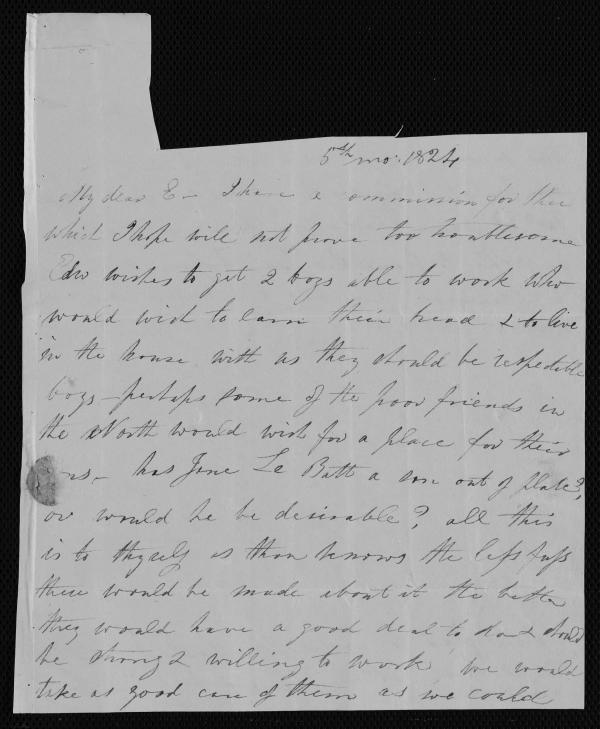 5th mo: 1824
My dear E - I have a commission for thee
which I hope will not prove too troublesome
Edw wishes to get 2 boys able to work who
would wish to earn their bread & to live
in the house with us they should be respectable
boys - perhaps some of the poor friends in
the North would wish for a place for their
sons - has Jane Le Butt a son out of place?,
or would he be desirable?, all this
is to thyself as thou knows the less fuss
there would be made about it the better
they would have a good deal to do & should
be strong & willing to work we would
take as good care of them as we could